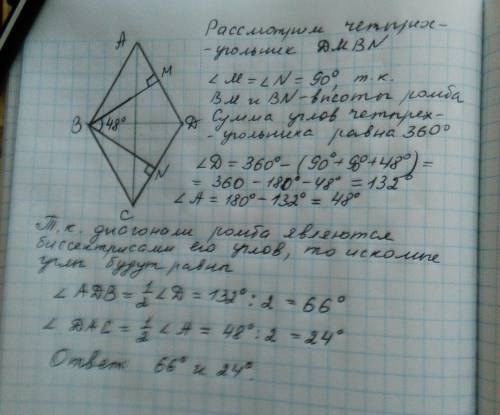 A
M
B
48°
D
N
C
Рассмотрим четырех-
-угольник DMBN
∠M = ∠N = 90°, т.к.
BM и BN - высоты ромба
Сумма углов четырех-
-угольника равна 360°
∠D = 360° - (90° + 90° + 48°) =
= 360 - 180° - 48° = 132°
∠A = 180° - 132° = 48°
Т.к. диагонали ромба являются
биссектрисами его углов, то искомые
углы будут равны
∠ADB = 1/2 ∠D = 132° : 2 = 66°
∠DAC = 1/2 ∠A = 48° : 2 = 24°
Ответ 66° и 24°.